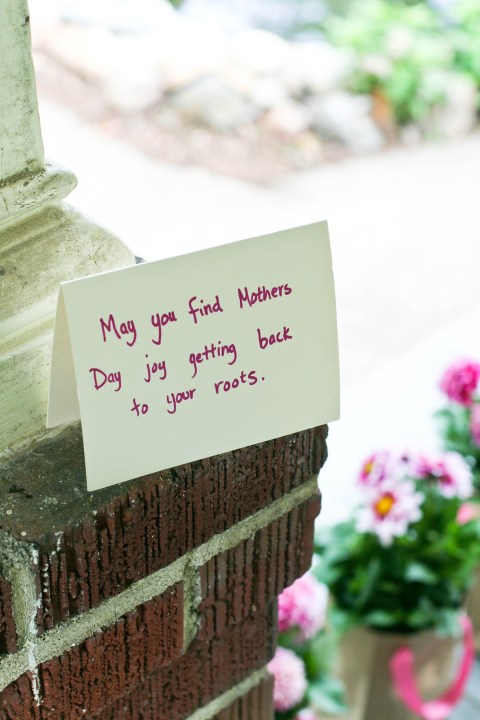 May you find Mothers
Day joy getting back
to your roots.